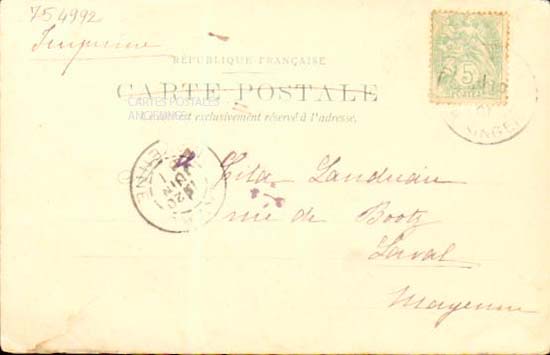 754992
Imprimé
RÉPUBLIQUE FRANÇAISE
CARTE POSTALE
CARTES POSTALES
ANCIENNES
est exclusivement réservé à l'adresse.
5
JUIN
20
Landreau
rue de Bootz
Laval
Mayenne